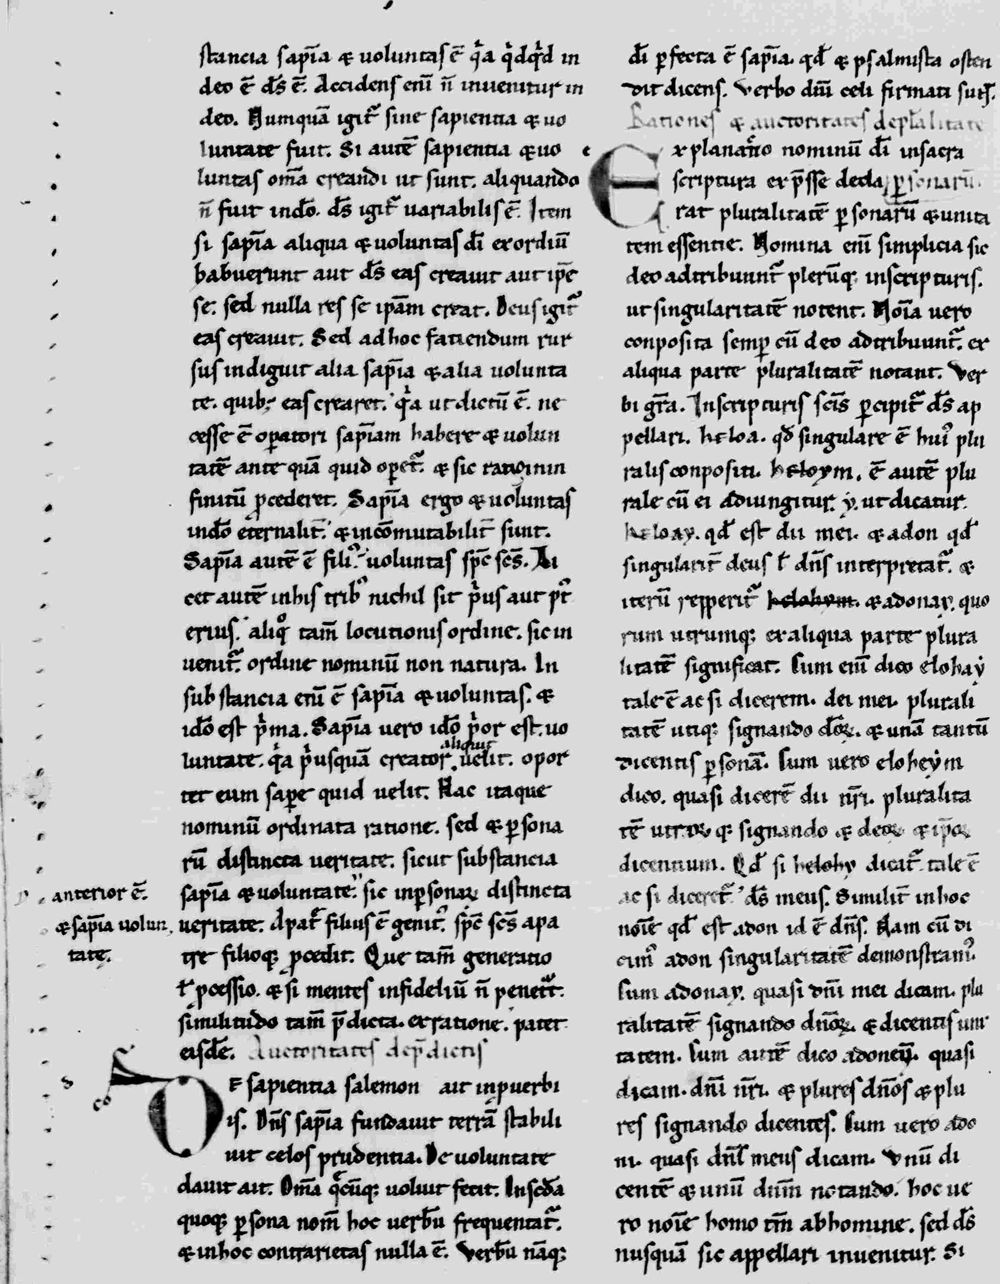 stancia sapi̅a ⁊ uoluntas e̅ q̍a q̍dq̍d in
deo e̅ d̅s e̅. Accidens eni̅ n̅ inuenitur in
deo. Numqua̅ igit᷑ sine sapientia ⁊ uo
luntate fuit. Si aute̅ sapientia ⁊ uo
luntas om̅a creandi ut sunt. aliquando
n̅ fuit indo̅. d̅s igit᷑ uariabilis e̅. Item
si sapi̅a aliqua ⁊ uoluntas di̅ exordiu̅
habuerunt aut d̅s eas creauit aut ip̅e
se. sed nulla res se ipa̅m creat. Deus igit᷑
eas creauit. Sed ad hoc faciendum rur
sus indiguit alia sapi̅a ⁊ alia uolunta
te. quib; eas crearet. q̍a ut dictu̅ e̅. ne
cesse e̅ op̲atori sapi̅am habere ⁊ uolun
tate̅ ante qua̅ quid op̲et᷑. ⁊ sic
finitu̅ p̲cederet. Sapi̅a ergo ⁊ uoluntas
indo̅ eternalit̅ ⁊ inco̅mutabilit̅ sunt.
Sapi̅a aute̅ e̅ fili᷒. uoluntas sp̅c sc̅s. Li
cet aute̅ inhis trib᷒ nichil sit p̍us aut p̍t
erius. aliq̊ tam̅ locutionis ordine. sic in
uenit᷑. ordine nominu̅ non natura. In
substancia eni̅ e̅ sapi̅a ⁊ uoluntas. ⁊
ido̅ est p̍ma. Sapi̅a uero ido̅ p̍or est. uo
luntate. q̍a p̍usqua̅ creator aliquit uelit. opor
tet eum sap̲e quid uelit. Hac itaque
nominu̅ ordinata ratione. sed ⁊ p̲sona
ru̅ distincta ueritate. sicut substancia
anterior e̅.
⁊ sapi̅a uolun
tate.
sapi̅a ⁊ uoluntate. sic inp̲sonaꝝ distincta
ueritate. Apat᷑ filius e̅ genit᷒. sp̅c sc̅s apa
tre filioq; p̲cedit. Que tam̅ generatio
ł p̲cessio. ⁊ si mentes infideliu̅ n̅ penet᷑t.
similitudo tam̅ p̅dicta. exratione. patet
eisde̅. Auctoritates dep̅dictis
DE sapientia salemon ait inp̲uerbi
is. Dn̅s sapi̅a fundauit terra̅ stabili
uit celos prudentia. De uoluntate
dauit ait. Om̅a q̊cu̅q; uoluit fecit. Insc̅da
quoq; p̲sona nom̅ hoc uerbu̅ frequentat᷑.
⁊ inhoc contrarietas nulla e̅. Verbu̅ na̅q;
di̅ p̲fecta e̅ sapi̅a. qd̅ ⁊ psalmista osten
dit dicens. Verbo dn̅i celi firmati su̅t.
Rationes ⁊ auctoritates deplalitate
Explanatio nominu̅ di̅ insacra p̲sonaru̅.
scriptura exp̅sse decla
rat pluralitate̅ p̲sonaru̅ ⁊ unita
tem essentie. Nomina eni̅ simplicia sic
deo adtribuunt᷑ pleru̅q; inscripturis.
ut singularitate̅ notent. Noi̅a uero
conposita semp̲ cu̅ deo adtribuunt᷑. ex
aliqua parte pluralitate̅ notant. Ver
bi gr̅a. Inscripturis sci̅s p̲cipit᷑ d̅s ap
pellari. heloa. qd̅ singulare e̅ hui᷒ plu
ralis conpositi. heloym. e̅ aute̅ plu
rale cu̅ ei adiungitur. y. ut dicatur.
heloay. qd̅ est dii mei. ⁊ adon qd̅
singularit̅ deus ł dn̅s interpretat᷑. ⁊
iteru̅ repperit᷑ helohym. ⁊ adonay. quo
rum utrumq; exaliqua parte plura
litate̅ significat. Cum eni̅ dico elohay
tale e̅ ac si dicerem. dei mei. plurali
tate̅ utiq; signando deo̅ꝝ. ⁊ una̅ tantu̅
dicentis p̲sona̅. Cum uero eloheym
dico. quasi dicere̅ dii nr̅i. pluralita
te̅ utroꝝq; signando ⁊ deoꝝ ⁊ ip̅oꝝ
dicentium. Qd̅ si helohy dicat᷑. tale e̅
ac si diceret᷑ d̅s meus. Similit̅ inhoc
noi̅e qd̅ est adon id e̅ dn̅s. Nam cu̅ di
cim᷒ adon singularitate̅ demonstram᷒.
Cum adonay. quasi dn̅i mei dicam. plu
ralitate̅ signando dn̅oꝝ. ⁊ dicentis uni
tatem. Cum aute̅ dico adoney. quasi
dicam. dn̅i nr̅i. ⁊ plures dn̅os ⁊ plu
res signando dicentes. Cum uero ado
ni. quasi dn̅s meus dicam. Vnu̅ di
cente̅ ⁊ unu̅ dnu̅m notando. hoc ue
ro noi̅e homo tm̅ abhomine. sed d̅s
nusqua̅ sic appellari inuenitur. Si